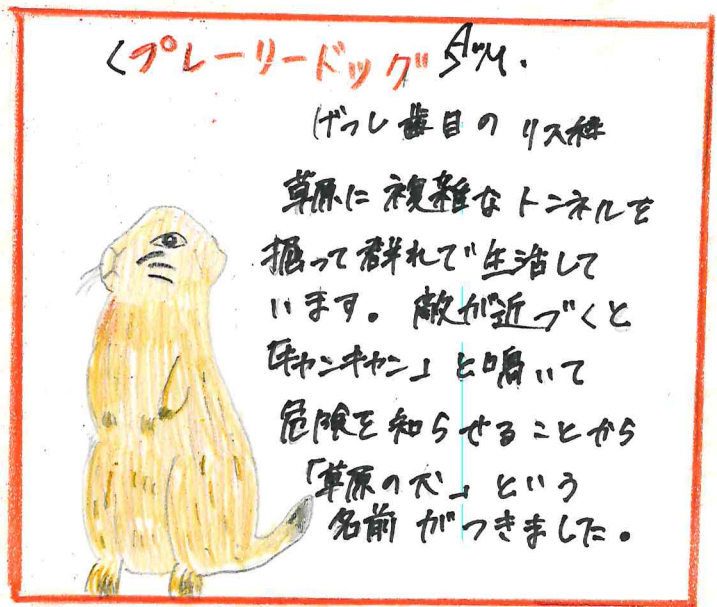 <プレーリードッグ
げっし歯目のリス科
草原に複雑なトンネルを
掘って群れで生活して
います。敵が近づくと
「キャンキャン」と鳴いて
危険を知らせることから
「草原の犬」という
名前がつきました。